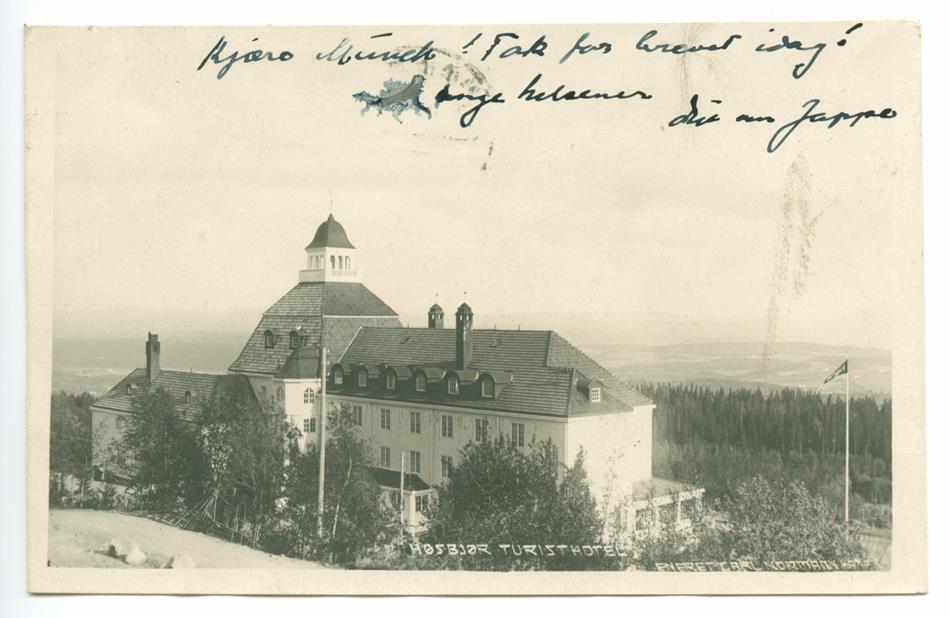 Kjære Munch! Tak for brevet idag!
ange helsener
din ven Jappe
HØSBJØR TURISTHOTEL
ENERET CARL NORMANN HAMAR